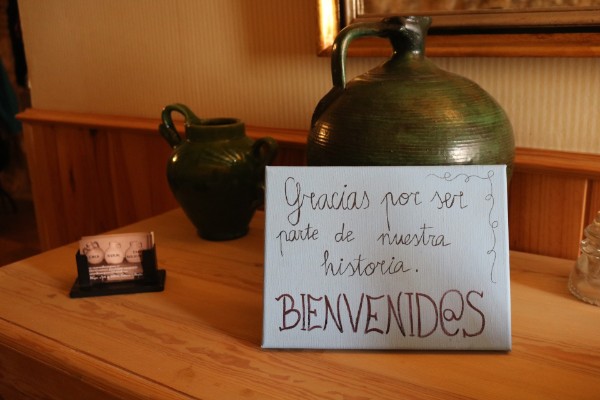 Gracias por ser
parte de nuestra
historia.
BIENVENID@S